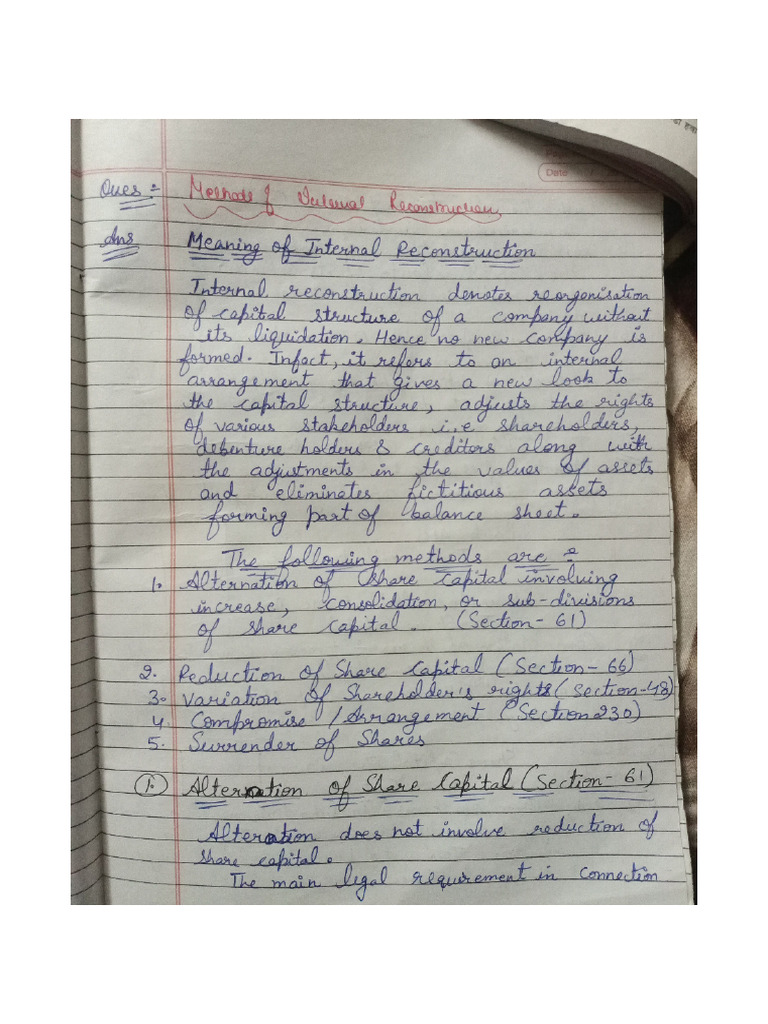 Date
Ques :-
Methods of Internal Reconstruction
Ans Meaning of Internal Reconstruction
Internal reconstruction denotes reorganisation
of capital structure of a company without
its liquidation. Hence no new company is
formed. Infact, it refers to an internal
arrangement that gives a new look to
the capital structure, adjusts the rights
of various stakeholders i.e shareholders,
debenture holders & creditors along with
the adjustments in the values of assets
and eliminates fictitious assets
forming part of balance sheet.
The following methods are :
1. Alternation of share capital involving
increase, consolidation, or sub-divisions
of share capital. (Section - 61)
2. Reduction of Share Capital (Section - 66)
3. Variation of Shareholder's rights (section - 48)
4. Compromise / Arrangement (Section 230)
5. Surrender of Shares
1. Alternation of Share Capital (Section - 61)
Alteration does not involve reduction of
share capital.
The main legal requirement in connection